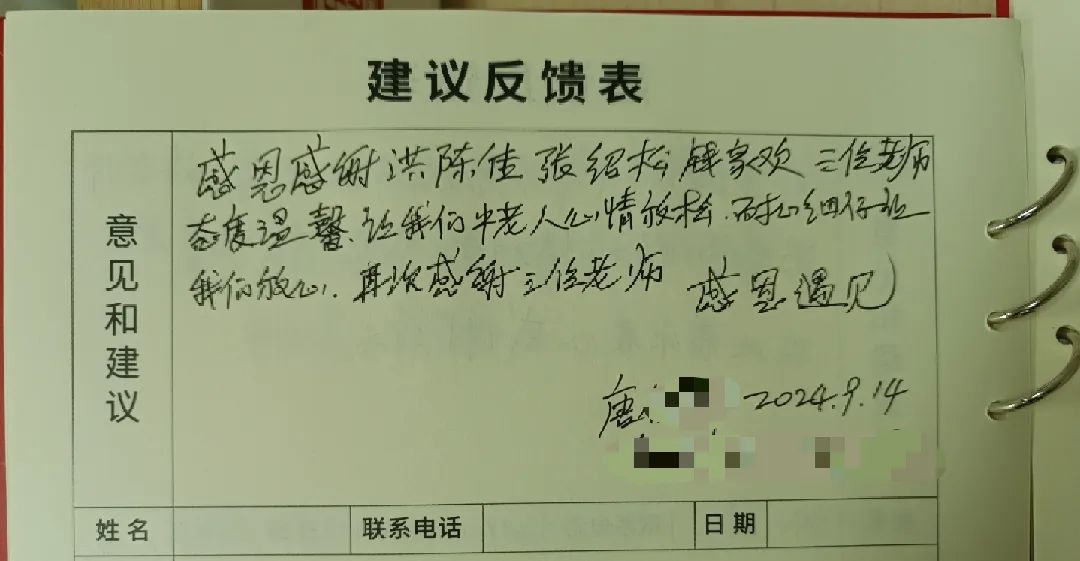 建议反馈表
意见和建议
感恩感谢洪陈佳 张绍松 钱家欢 三位老师
态度温馨、让我们中老人心情放松、耐心细仔让
我们放心. 再次感谢三位老师 感恩遇见
唐 2024.9.14
姓名 联系电话 日期